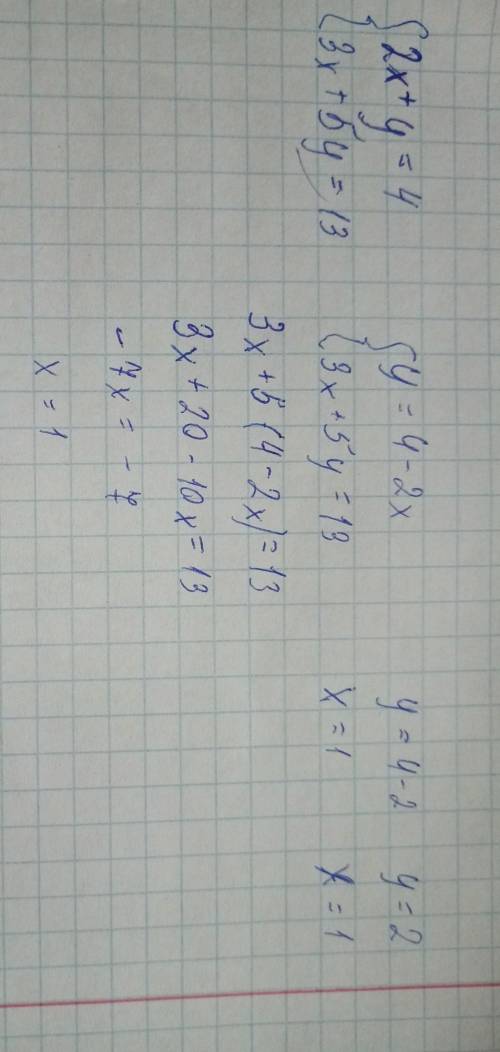 {2x+y=4
{3x+5y=13
{y=4-2x
{3x+5y=13
3x+5(4-2x)=13
3x+20-10x=13
-7x=-7
x=1
y=4-2
x=1
y=2
x=1